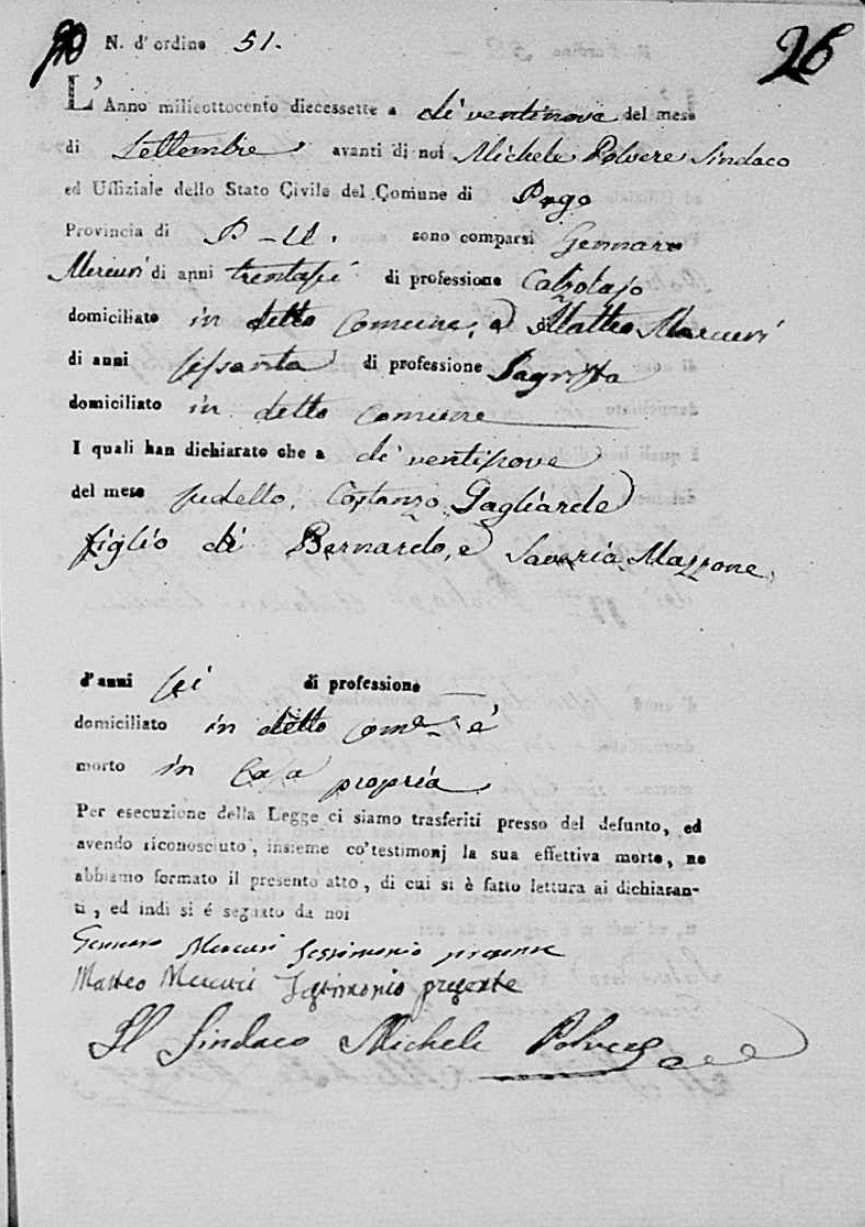 N. d'ordine 51. 26
L'Anno milleottocento diecessette a dì ventinove del mese
di Settembre avanti di noi Michele Polvere Sindaco
ed Uffiziale dello Stato Civile del Comune di Pago
Provincia di P-U. sono comparsi Gennaro
Mercuri di anni trentasei di professione Calzolajo
domiciliato in detto Comune, e Matteo Mercuri
di anni sessanta di professione Sagrista
domiciliato in detto Comune
I quali han dichiarato che a dì ventinove
del mese sudetto, Costanzo Gagliarde
figlio di Bernardo, e Saveria Mazzone,
d'anni sei di professione
domiciliato in detto Com.e è
morto in Casa propria
Per esecuzione della Legge ci siamo trasferiti presso del defunto, ed
avendo riconosciuto, insieme co'testimonj la sua effettiva morte, ne
abbiamo formato il presente atto, di cui si è fatto lettura ai dichiaran-
ti, ed indi si é segnato da noi
Gennaro Mercuri Testimonio presente
Matteo Mercuri Testimonio presente
Il Sindaco Michele Polvere